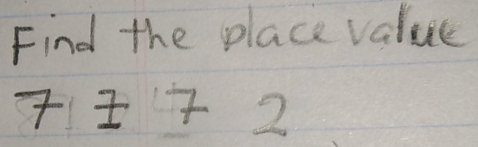 Find the place value
7 7 7 2